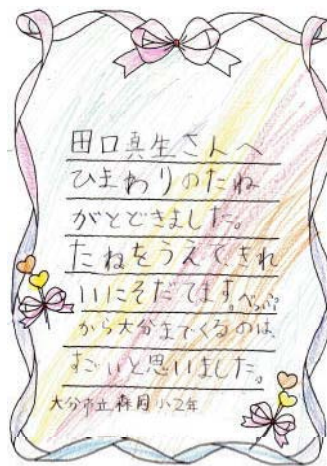 田口真生さんへ
ひまわりのたね
がとどきました。
たねをうえて、きれ
いにそだてます。べっぷ
から大分までくるのは、
すごいと思いました。
大分市立森岡小2年